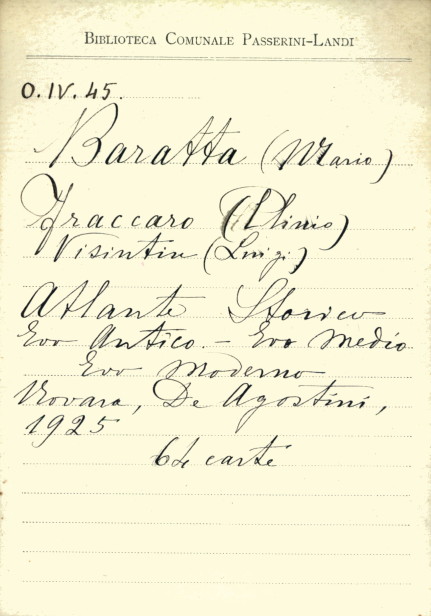 BIBLIOTECA COMUNALE PASSERINI-LANDI
O. IV. 45.
Baratta (Mario)
Fraccaro (Plinio)
Visintin (Luigi)
Atlante Storico
Evo Antico. - Evo Medio
Evo Moderno
Novara, De Agostini,
1925
64 carte